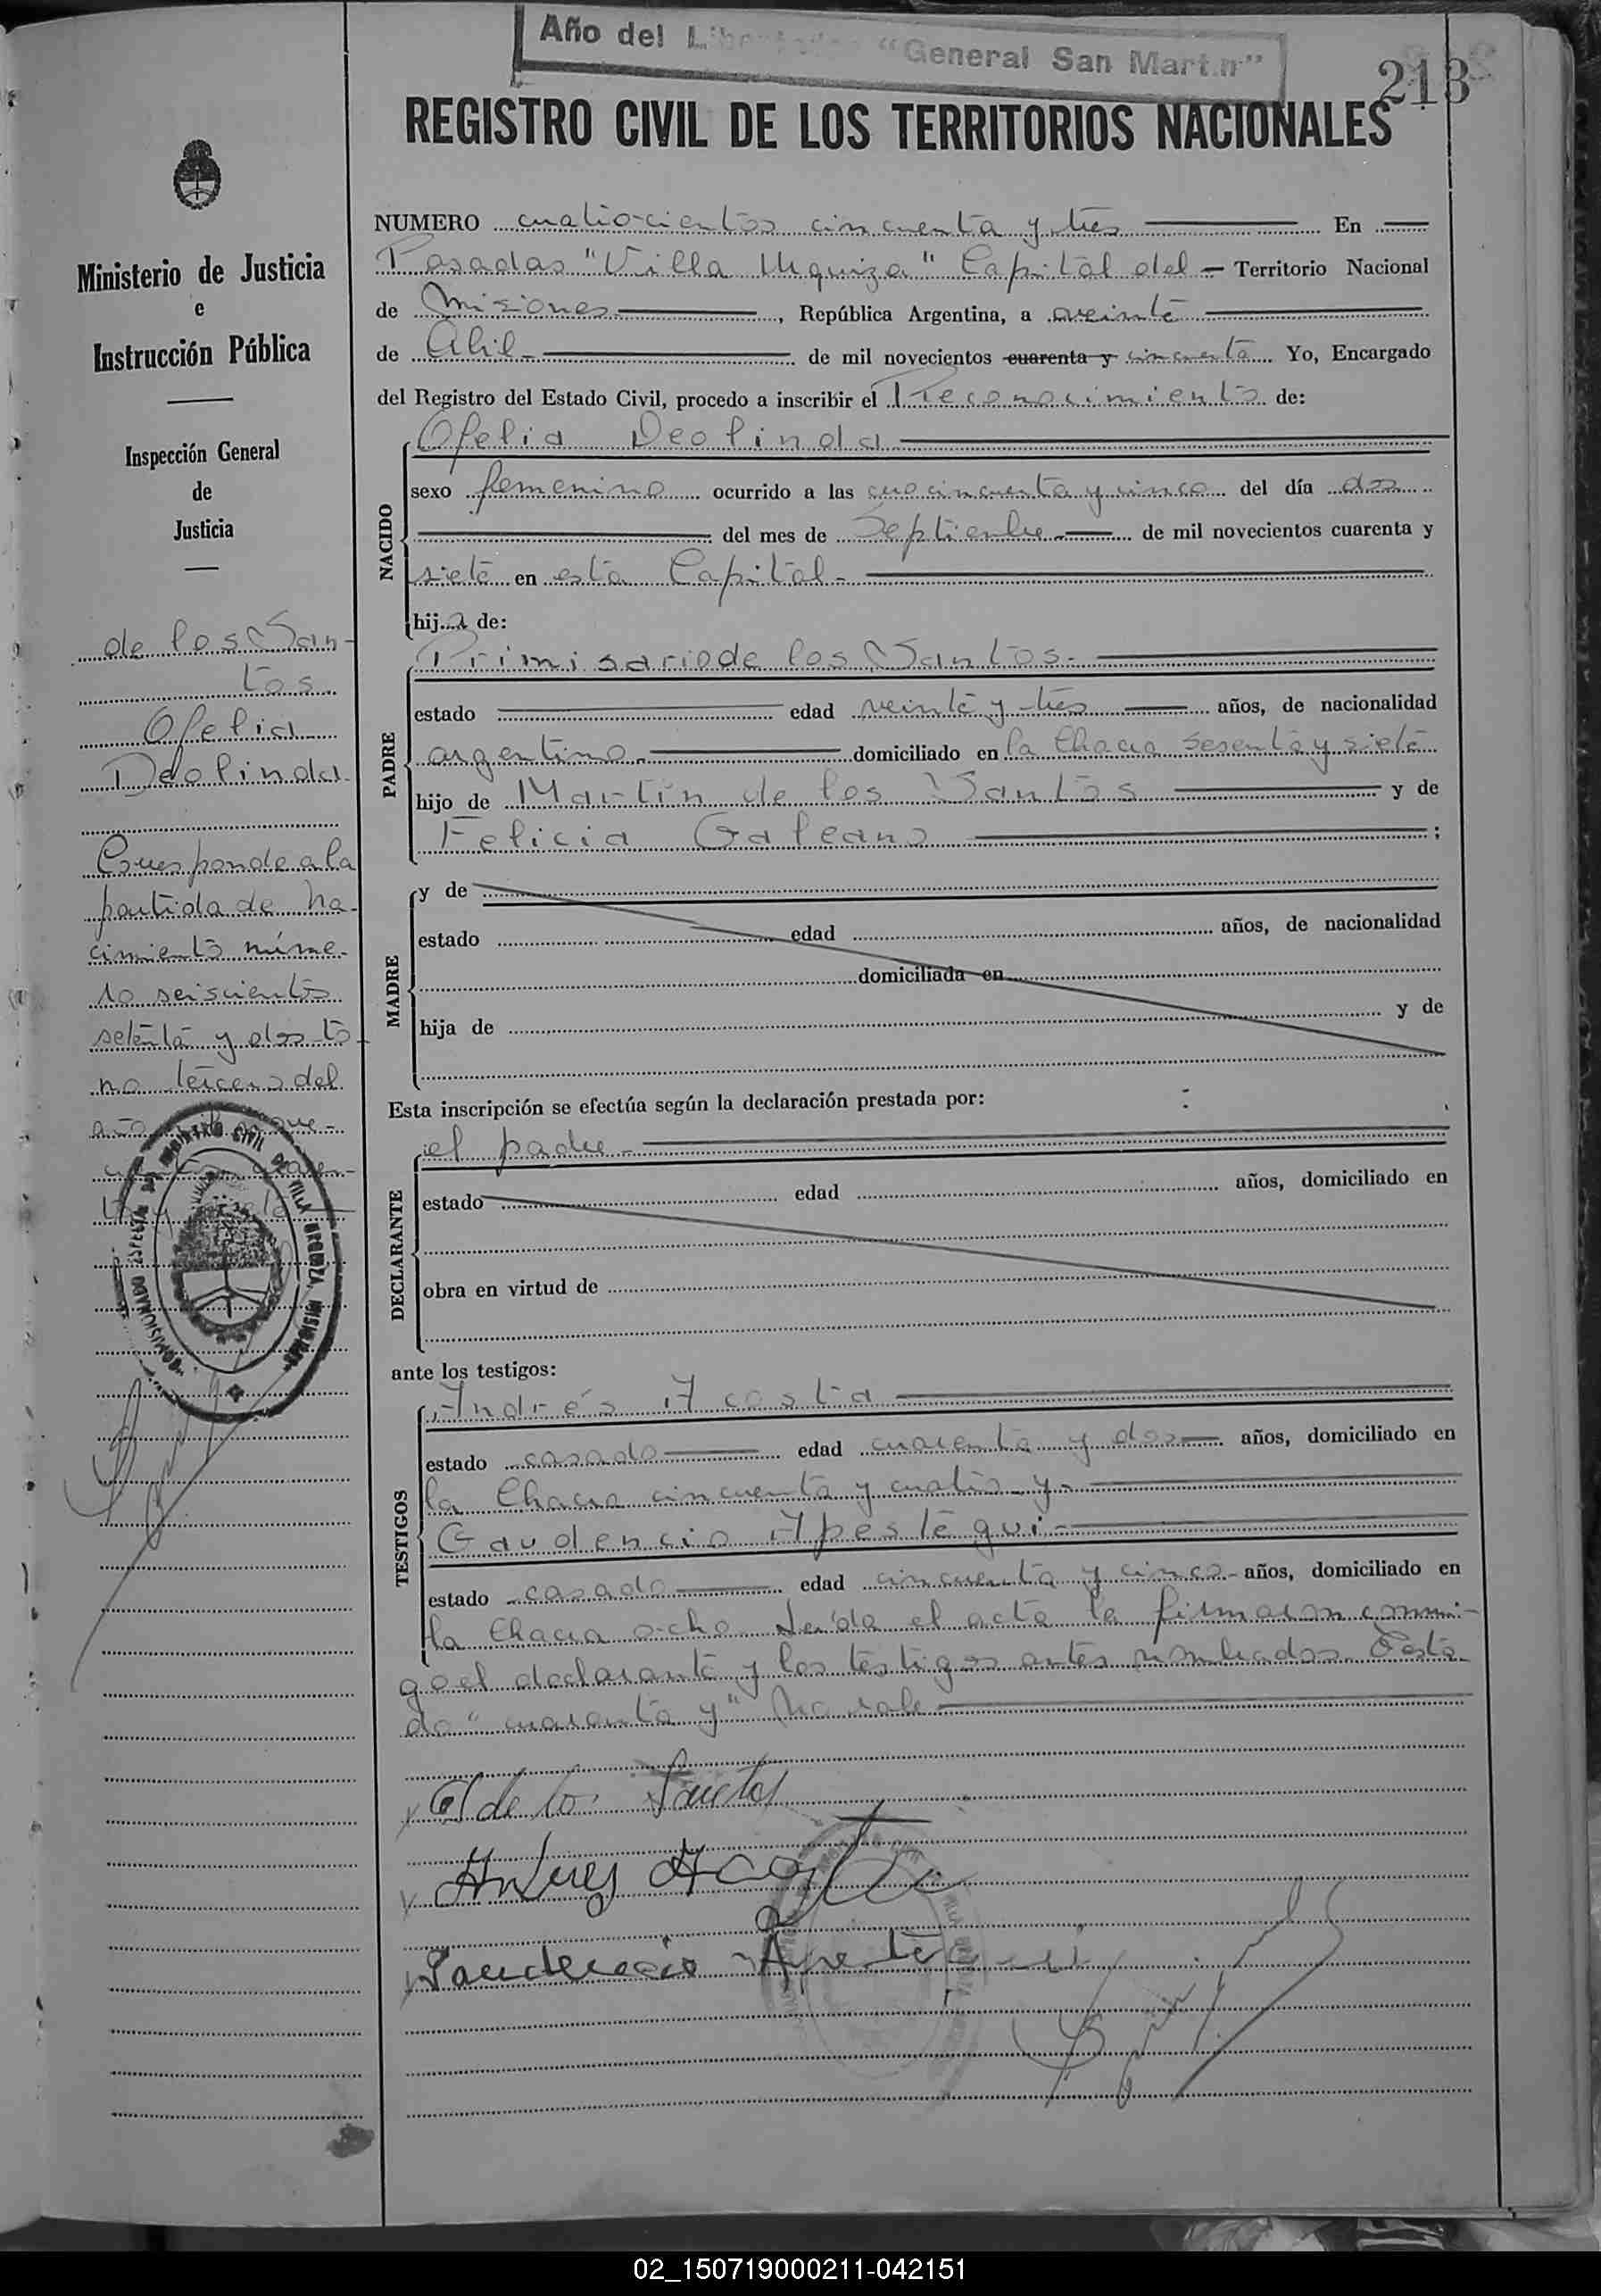 Año del Libertador "General San Martín"
213
REGISTRO CIVIL DE LOS TERRITORIOS NACIONALES
Ministerio de Justicia
e
Instrucción Pública
Inspección General
de
Justicia
de los San-
tos
Ofelia
Deolinda
Corresponde a la
partida de na-
cimiento núme-
ro seiscientos
setenta y dos to-
mo tercero del
año
NUMERO cuatrocientos cincuenta y tres En
Posadas "Villa Urquiza" Capital del Territorio Nacional
de Misiones, República Argentina, a veinte
de Abril de mil novecientos cuarenta y cincuenta Yo, Encargado
del Registro del Estado Civil, procedo a inscribir el Reconocimiento de:
NACIDO
Ofelia Deolinda
sexo femenino ocurrido a las cincuenta y cinco del día dos
del mes de Septiembre de mil novecientos cuarenta y
siete en esta Capital.
hija de:
PADRE
Primisario de los Santos.
estado edad veinte y tres años, de nacionalidad
argentino. domiciliado en la Chacra sesenta y siete
hijo de Martín de los Santos y de
Felicia Galeano ;
MADRE
y de
estado edad años, de nacionalidad
domiciliada en
hija de y de
Esta inscripción se efectúa según la declaración prestada por:
DECLARANTE
el padre
estado edad años, domiciliado en
obra en virtud de
ante los testigos:
TESTIGOS
Andrés Acosta
estado casado edad cuarenta y dos años, domiciliado en
la Chacra cincuenta y cuatro y
Gaudencio Apestegui
estado casado edad cincuenta y cinco años, domiciliado en
la Chacra ocho. Leída el acta la firmaron conmi-
go el declarante y los testigos antes nombrados. Testa-
do "cuarenta y" No vale
de los Santos
Andres Acosta
Gaudencio Apestegui
02_150719000211-042151